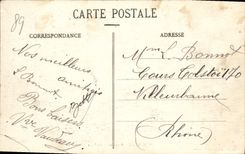 89
CARTE POSTALE
CORRESPONDANCE
ADRESSE
Nos meilleurs
amitiés
L Bonnot
Bons baisers
Mme L. Bonnot
Cours Tolstoï 170
Villeurbanne
(Rhône)